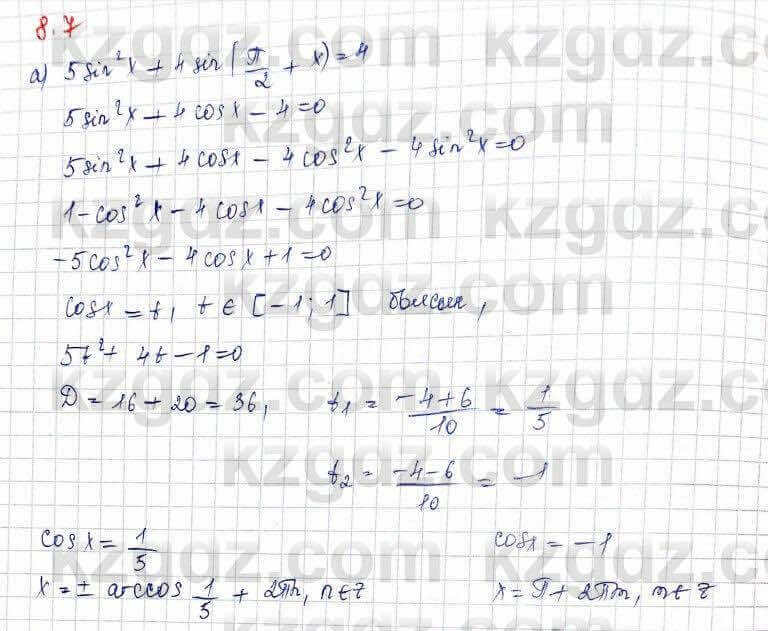 8.7
а) 5sin²x + 4sin(π/2 + x) = 4
5sin²x + 4cosx - 4 = 0
5sin²x + 4cosx - 4cos²x - 4sin²x = 0
1 - cos²x - 4cosx - 4cos²x = 0
-5cos²x - 4cosx + 1 = 0
cosx = t, t ∈ [-1; 1] болсын,
5t² + 4t - 1 = 0
D = 16 + 20 = 36, t₁ = (-4+6)/10 = 1/5
t₂ = (-4-6)/10 = -1
cosx = 1/5 cosx = -1
x = ± arccos 1/5 + 2πn, n∈z x = π + 2πm, m∈z
kzgdz.com